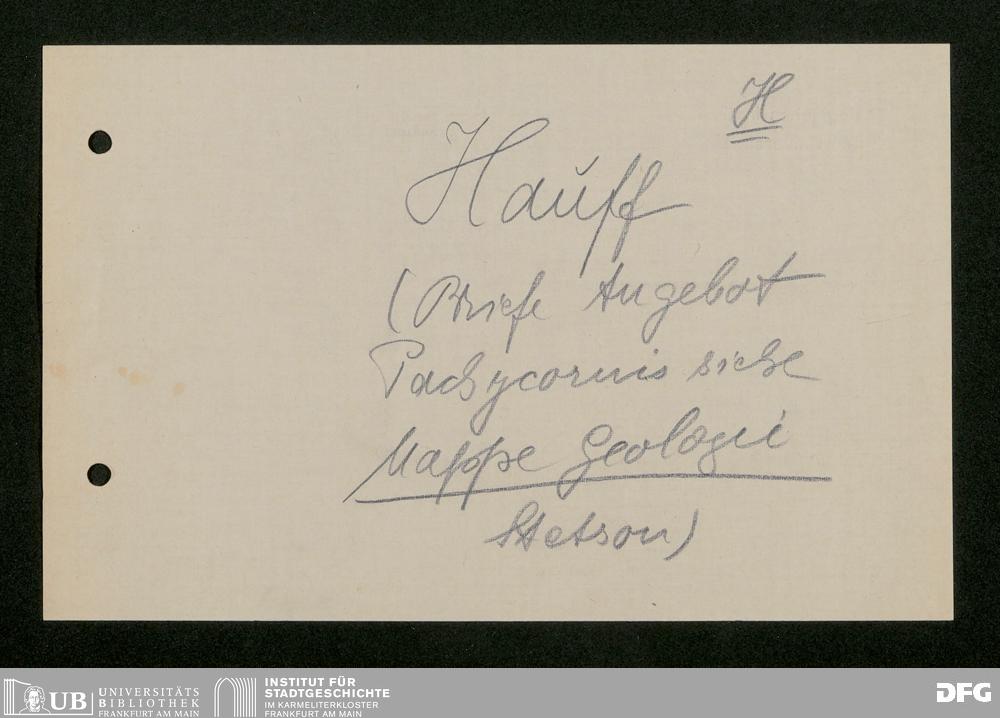 H
Hauff
(Briefe Angebot
Pachycormis siehe
Mappe Geologie
Stetson)
UB UNIVERSITÄTS
BIBLIOTHEK
FRANKFURT AM MAIN
INSTITUT FÜR
STADTGESCHICHTE
IM KARMELITERKLOSTER
FRANKFURT AM MAIN
DFG